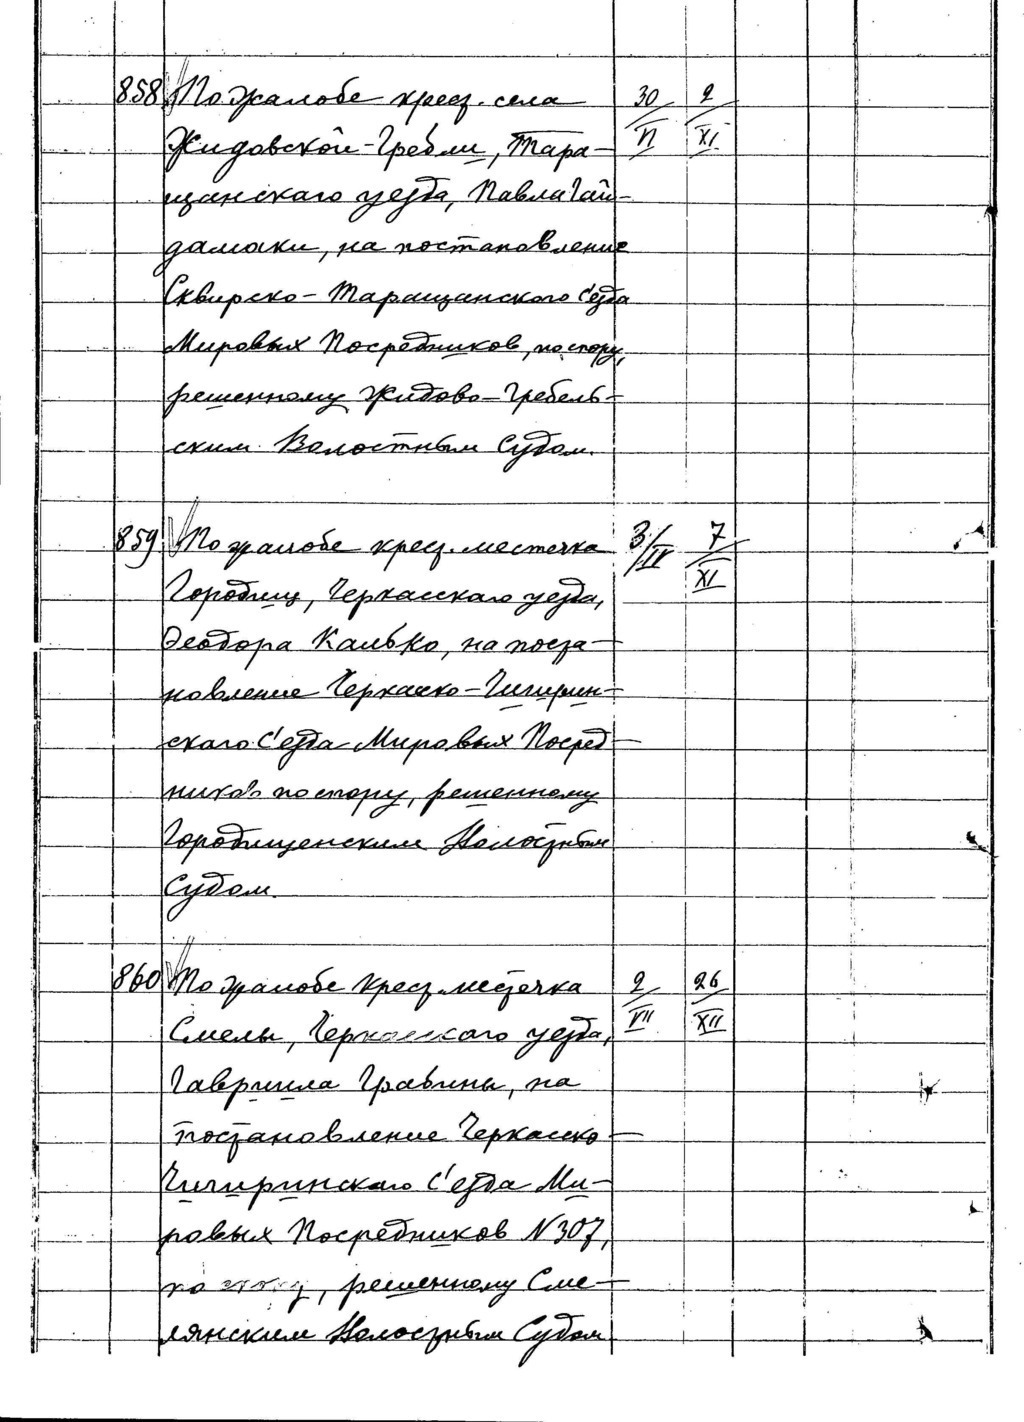 858 По жалобе крест. села 30/VI 2/XI
Жидовской-Гребли, Тара-
щанскаго уезда, Павла Гай-
дамаки, на постановление
Сквирско-Таращанскаго С'езда
Мировых Посредников, по спору,
решенному Жидово-Гребель-
ским Волостным Судом.
859 По жалобе крест. местечка 3/IV 7/XI
Городищ, Черкасскаго уезда,
Феодора Калько, на поста-
новление Черкасско-Чигирин-
скаго С'езда Мировых Посред-
ников по спору, решенному
Городищенским Волостным
Судом.
860 По жалобе крест. местечка 2/VII 26/XII
Смелы, Черкасскаго уезда,
Гавриила Гравины, на
постановление Черкасско-
Чигиринскаго С'езда Ми-
ровых Посредников N 307,
по спору, решенному Сме-
лянским Волостным Судом